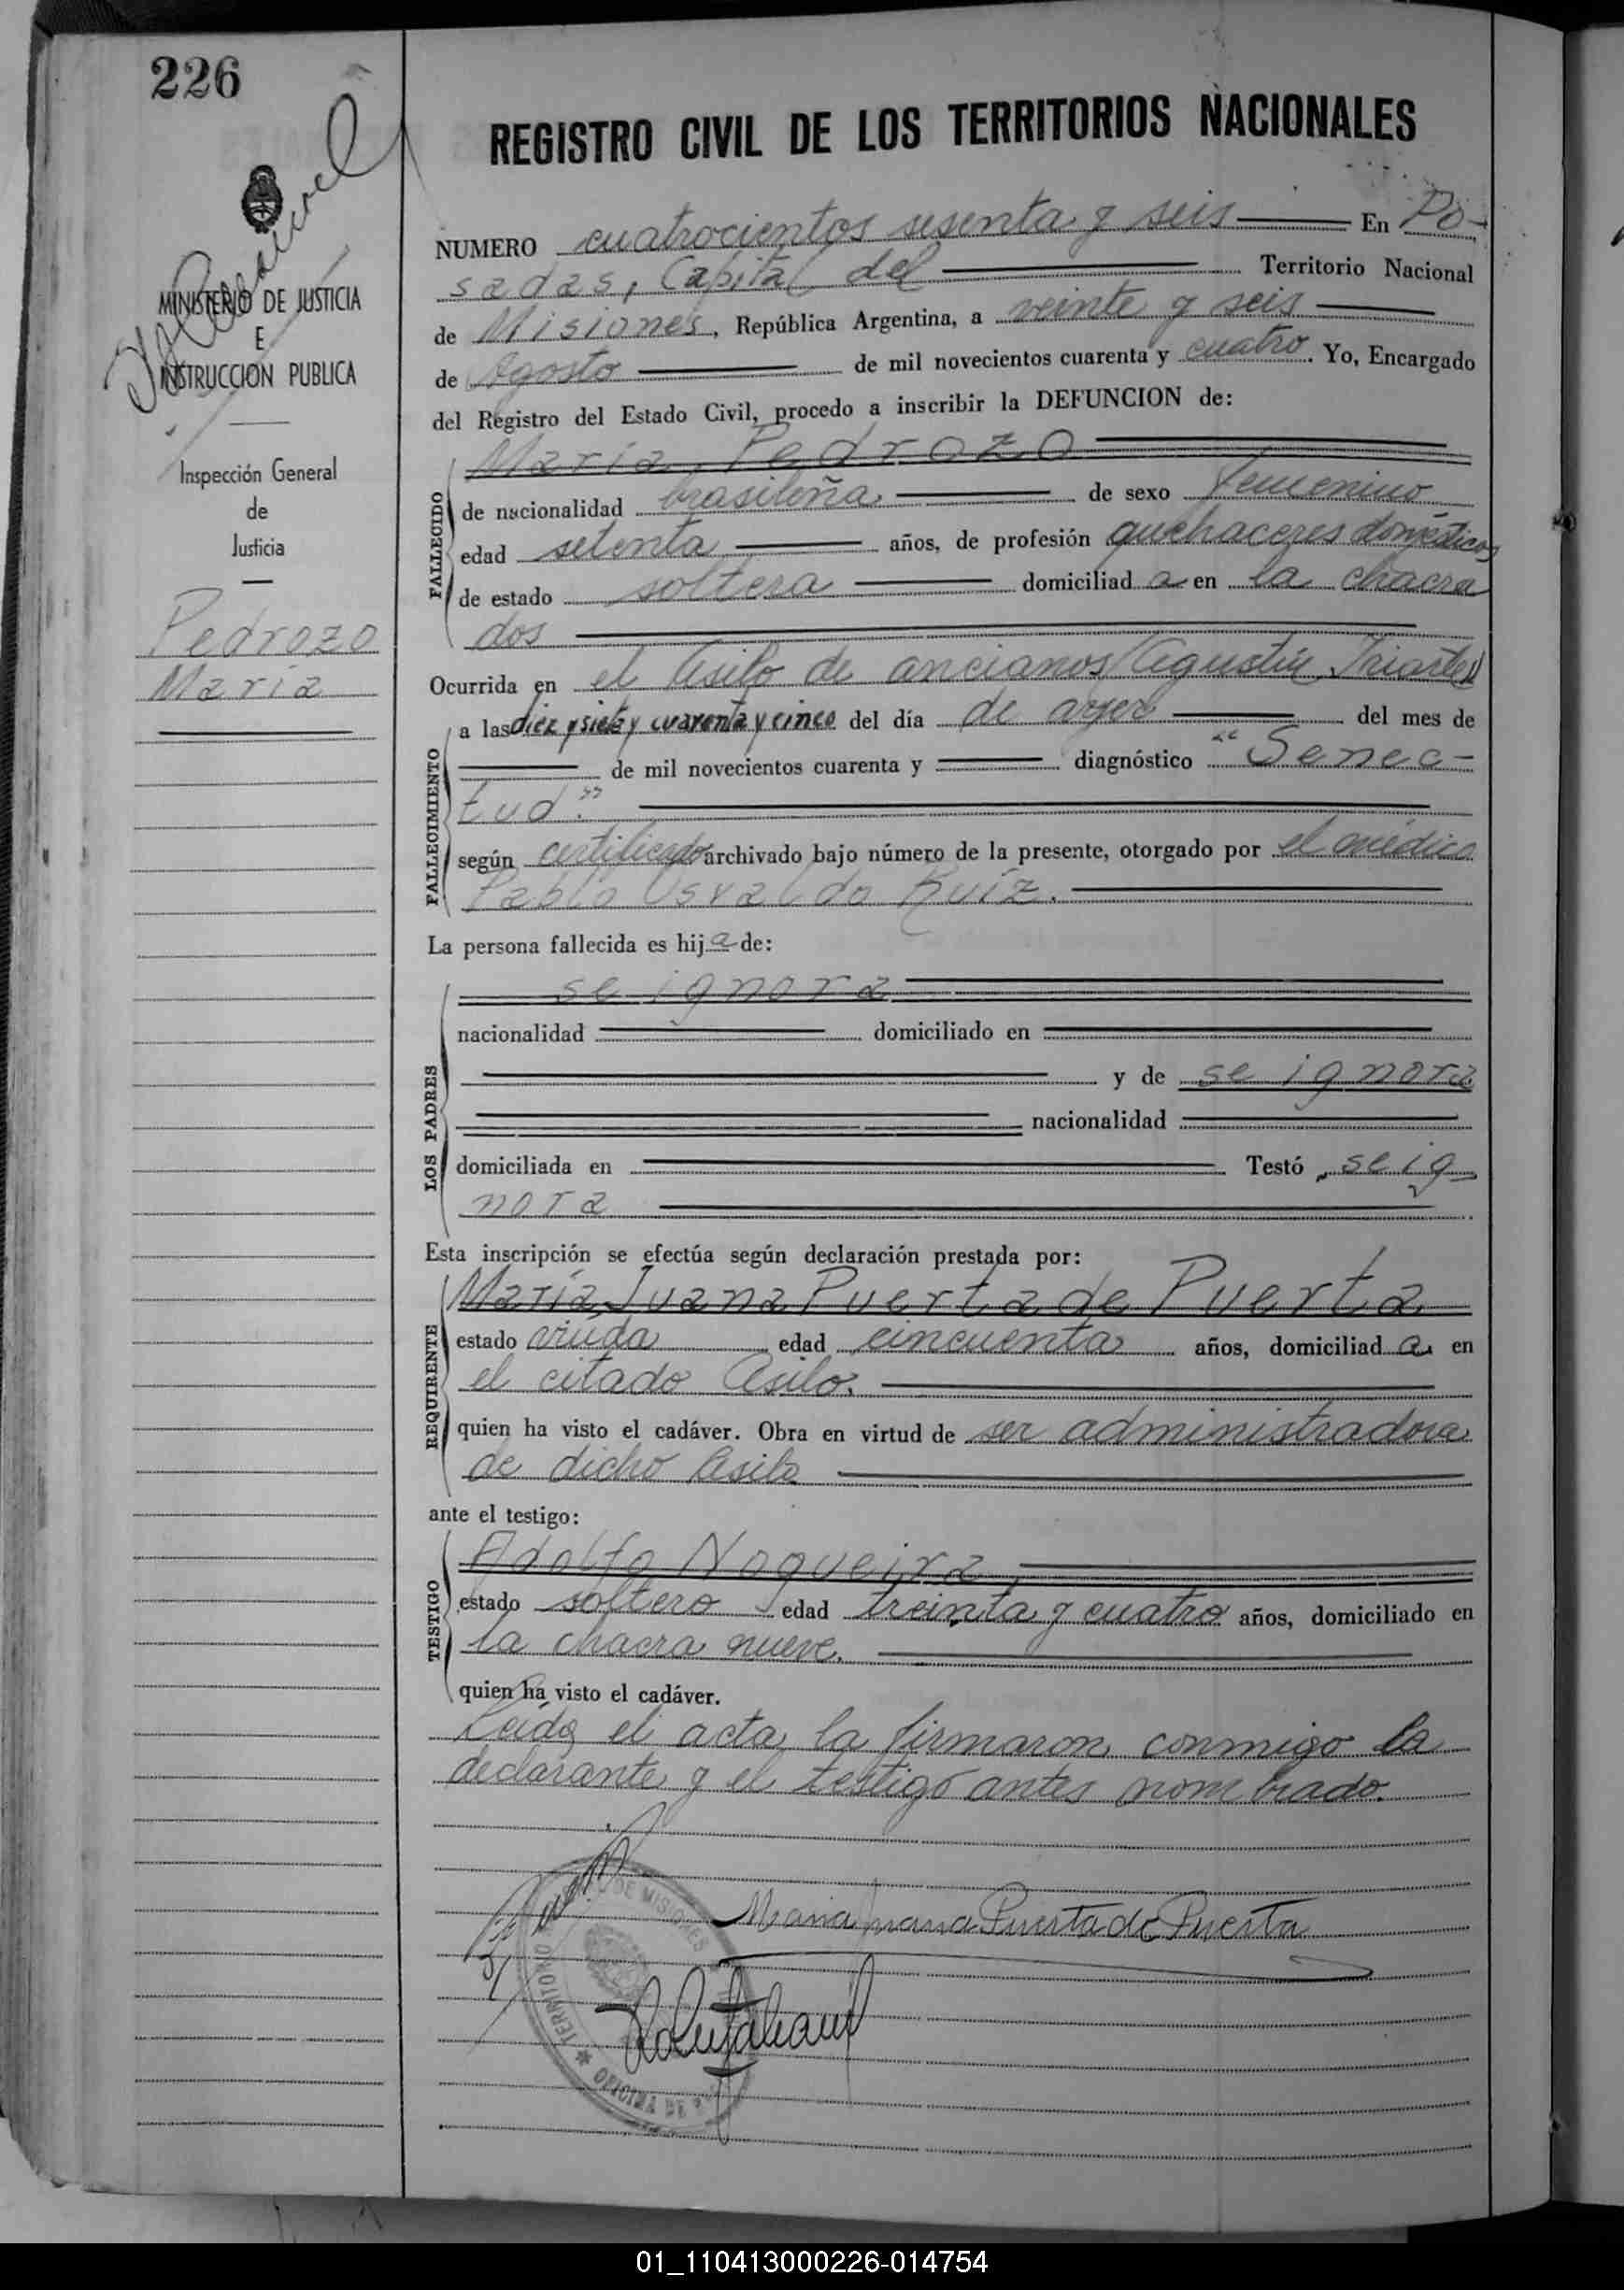 226
MINISTERIO DE JUSTICIA
E
INSTRUCCION PUBLICA
Inspección General
de
Justicia
Pedrozo
María
REGISTRO CIVIL DE LOS TERRITORIOS NACIONALES
NUMERO cuatrocientos sesenta y seis En Po-
sadas, Capital del Territorio Nacional
de Misiones, República Argentina, a veinte y seis
de Agosto de mil novecientos cuarenta y cuatro. Yo, Encargado
del Registro del Estado Civil, procedo a inscribir la DEFUNCION de:
FALLECIDO
María Pedrozo
de nacionalidad brasileña de sexo femenino
edad setenta años, de profesión quehaceres domésticos
de estado soltera domiciliad a en la chacra
dos
Ocurrida en el Asilo de ancianos (Agustín Iriarte)
FALLECIMIENTO
a las diez y siete y cuarenta y cinco del día de ayer del mes de
de mil novecientos cuarenta y diagnóstico "Senec-
tud."
según certificado archivado bajo número de la presente, otorgado por el médico
Pablo Osvaldo Ruíz.
La persona fallecida es hij a de:
LOS PADRES
se ignora
nacionalidad domiciliado en
y de se ignora
nacionalidad
domiciliada en Testó se ig-
nora
Esta inscripción se efectúa según declaración prestada por:
REQUIRENTE
María Juana Puerta de Puerta
estado viuda edad cincuenta años, domiciliad a en
el citado Asilo.
quien ha visto el cadáver. Obra en virtud de ser administradora
de dicho Asilo
ante el testigo:
TESTIGO
Adolfo Nogueira
estado soltero edad treinta y cuatro años, domiciliado en
la chacra nueve.
quien ha visto el cadáver.
Leída el acta, la firmaron conmigo la
declarante y el testigo antes nombrado.
Maria Juana Puerta de Puerta
DE MISIONES
TERRITORIO
OFICINA
01_110413000226-014754